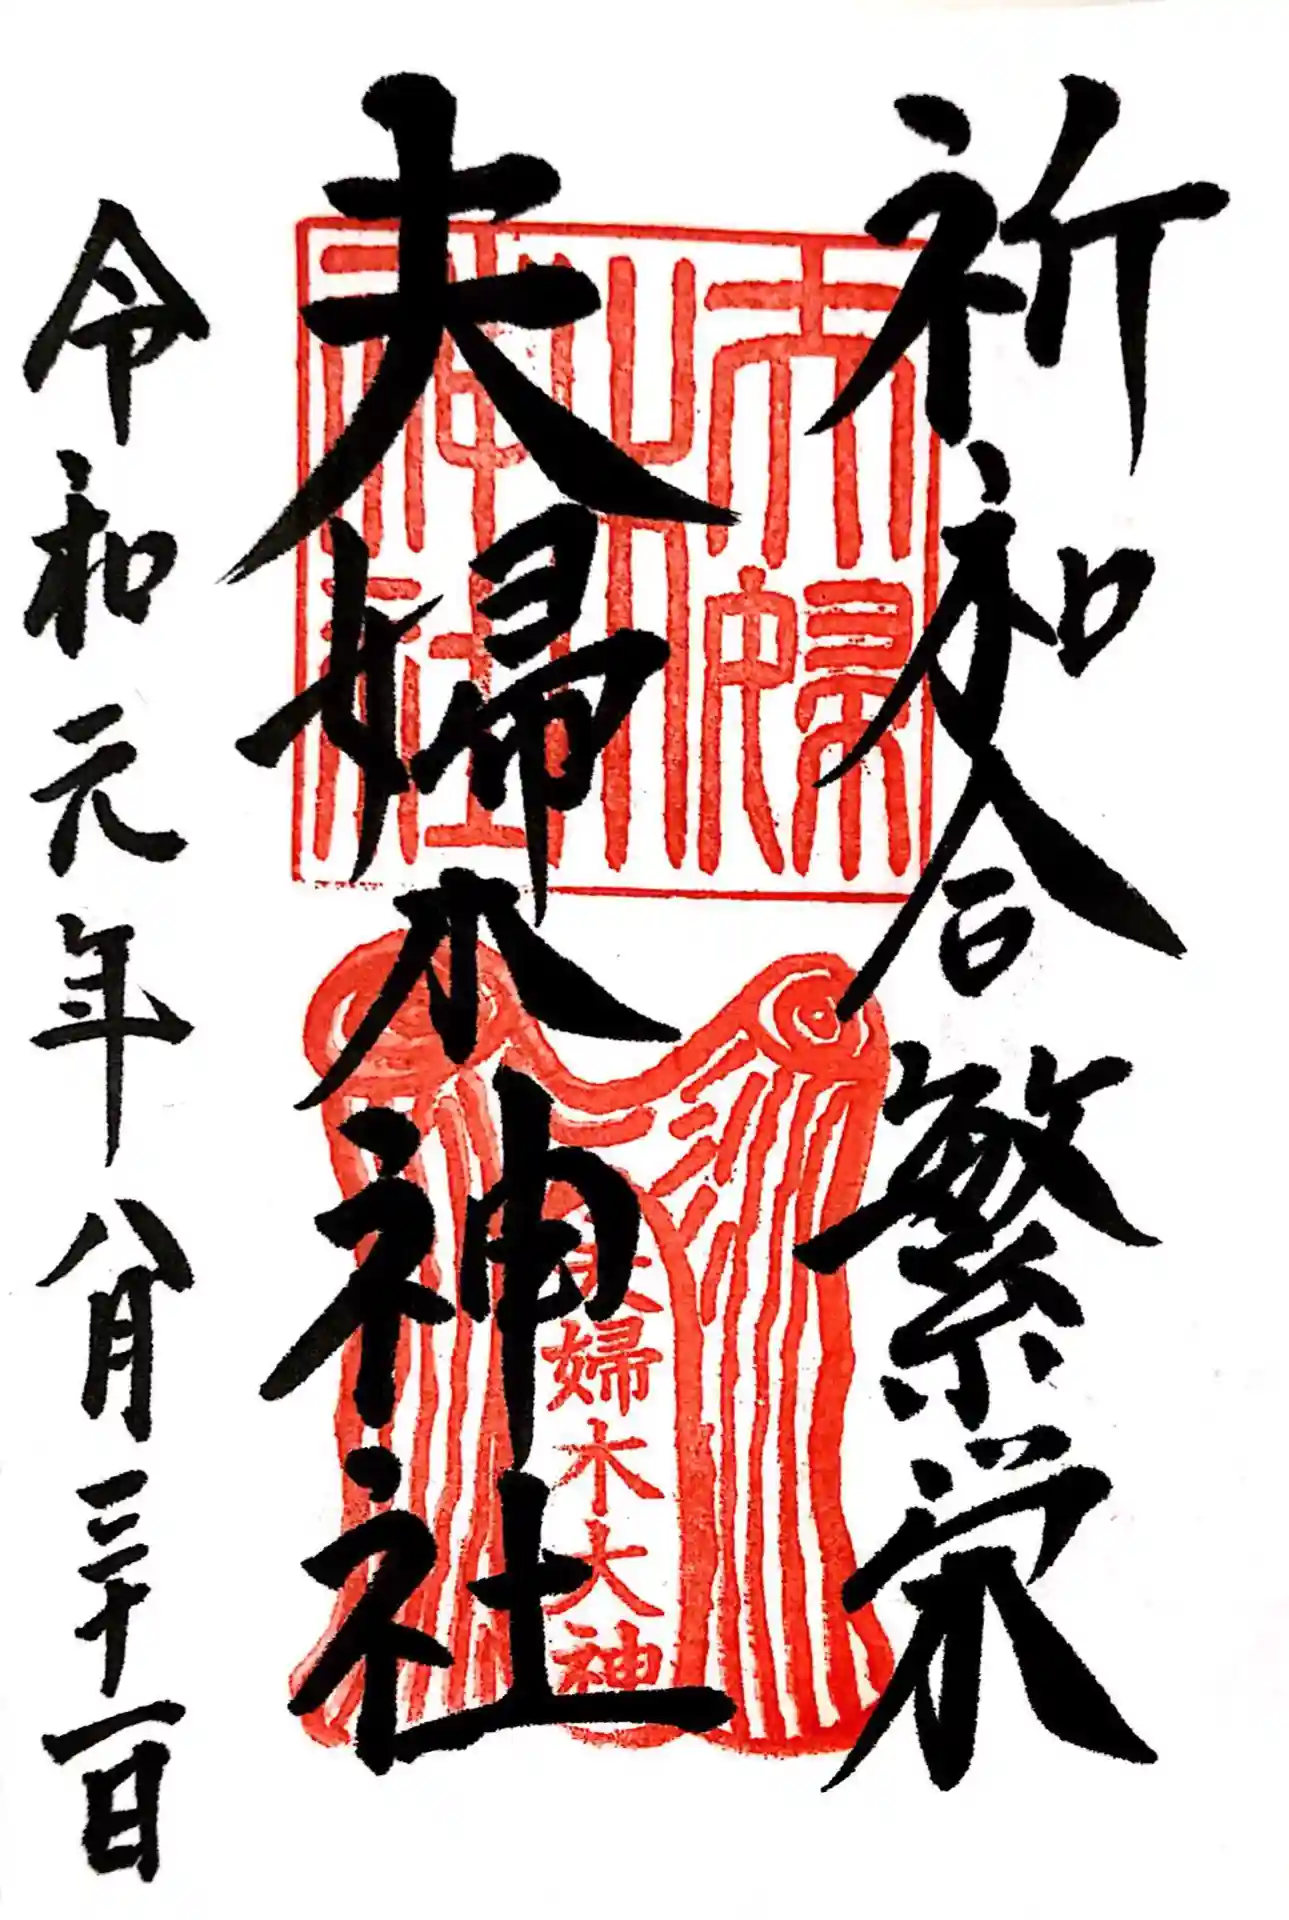 祈和合繁栄
夫婦木神社
令和元年八月三十一日
夫婦木神社
夫婦木大神